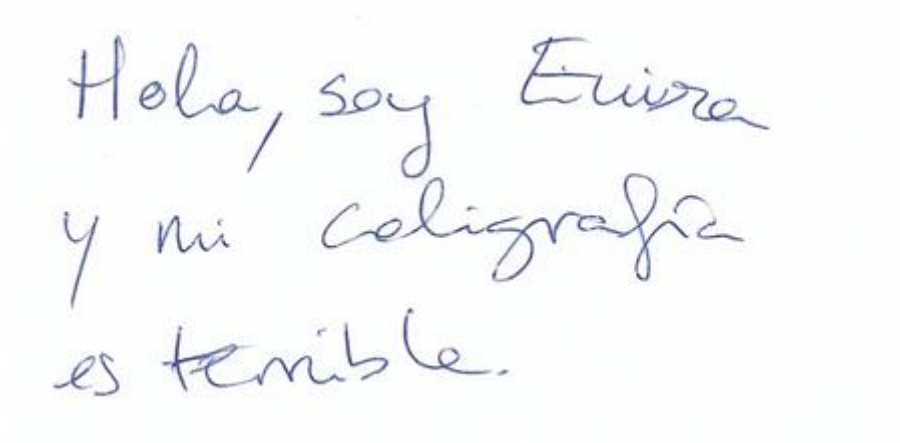 Hola, soy
y mi caligrafía
es terrible.